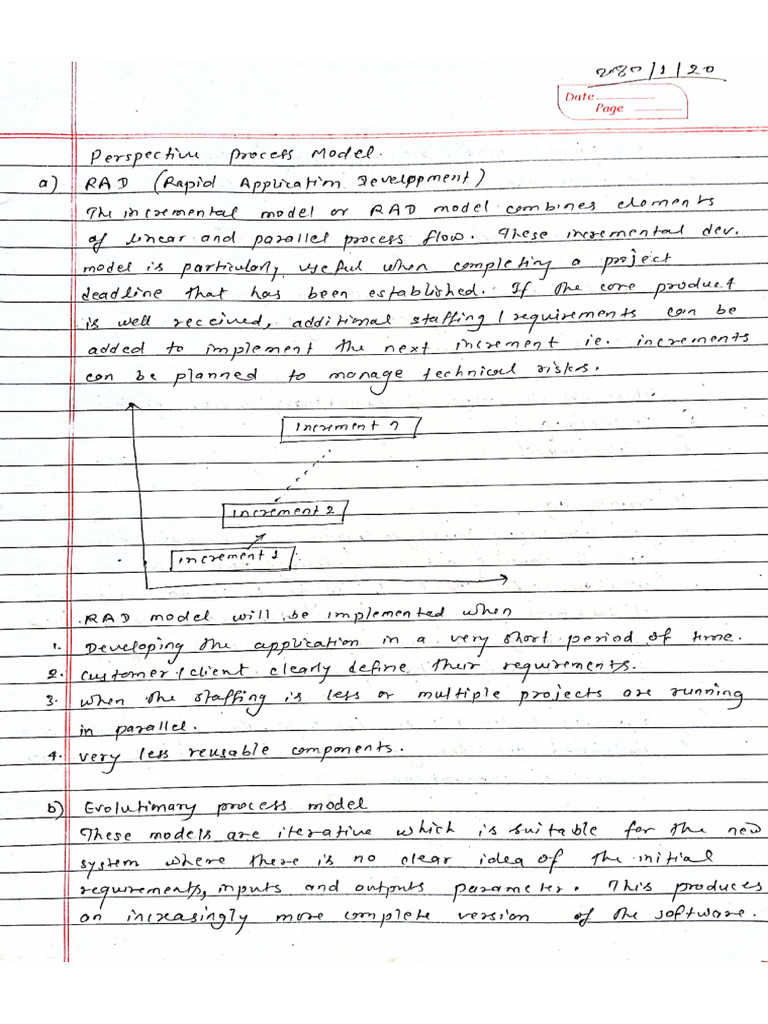 2080/1/20
Date
Page
Perspective process Model.
a) RAD (Rapid Application Development)
The incremental model or RAD model combines elements
of linear and parallel process flow. These incremental dev.
model is particularly useful when completing a project
deadline that has been established. If the core product
is well received, additional staffing/requirements can be
added to implement the next increment ie. increments
can be planned to manage technical risks.
increment n
increment 2
increment 1
RAD model will be implemented when
1. Developing the application in a very short period of time.
2. customer/client clearly define their requirements.
3. when the staffing is less or multiple projects are running
in parallel.
4. very less reusable components.
b) Evolutimary process model
These models are iterative which is suitable for the new
system where there is no clear idea of the initial
requirements, inputs and outputs parameter. This produces
an increasingly more complete version of the software.